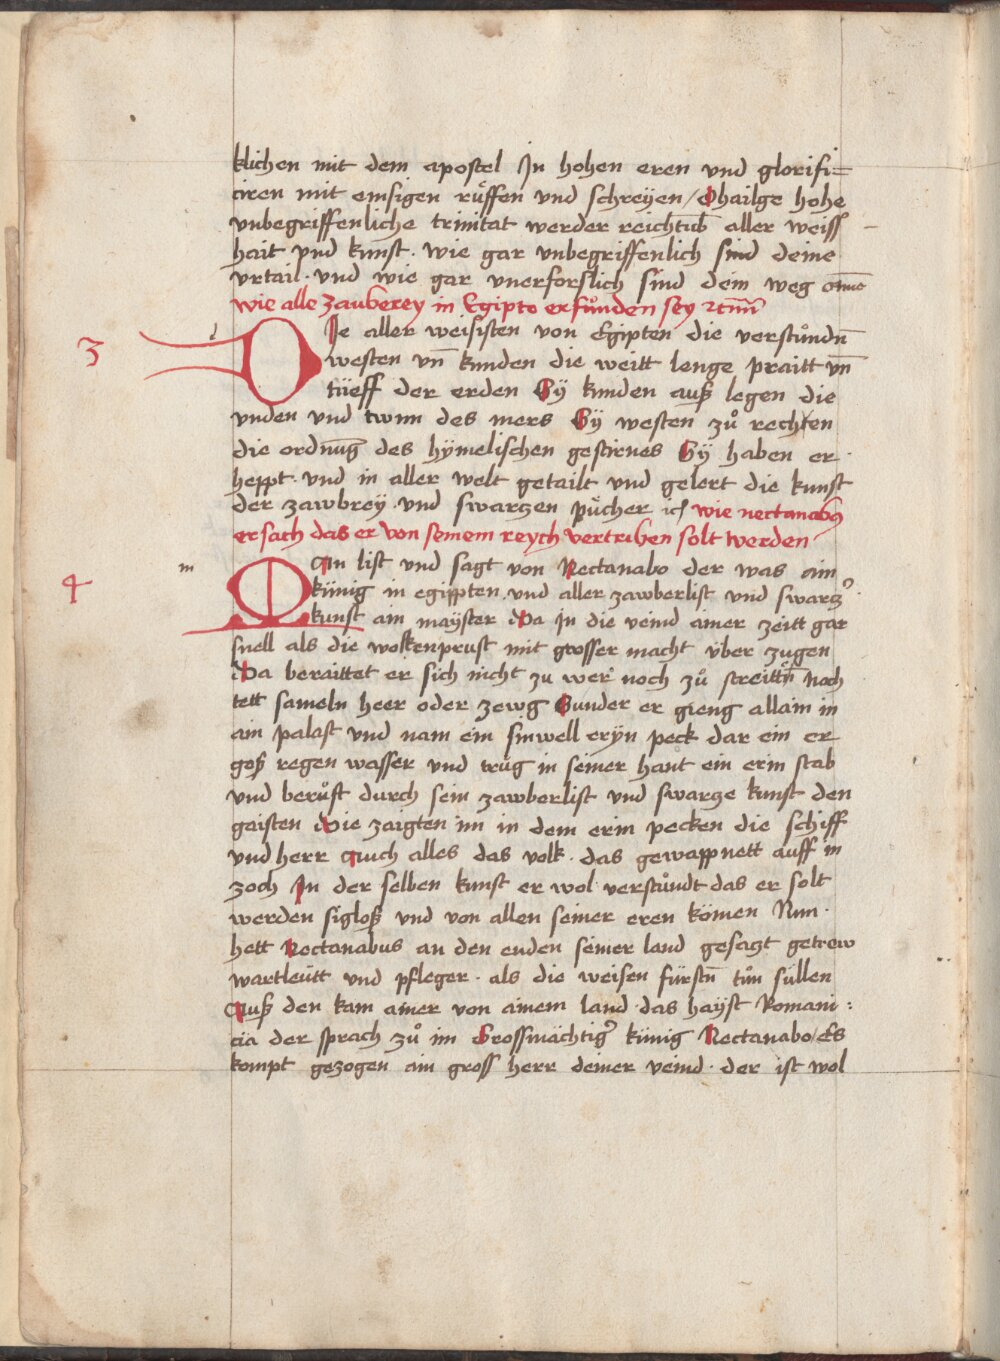 klichen mit dem apostel In hohen eren und glorifi=
ciren mit emsigen rüffen und schreÿen / O hailge hohe
unbegriffenliche trinitat werder reichtub aller weiss
hait und kunst · wie gar unbegriffenlich sind deine
urtail · und wie gar unerforslich sind dein weg
wie alle zauberey in Egipto erfůnden sey
3
DIe aller weisisten von Egipten die verstůndn̄
westen un̄ kunden die weitt lenge praitt un̄
tüeff der erden Sÿ kunden auß legen die
unden und twnn des mers Sÿ westen zů rechten
die ordnūg des hÿmelischen gestirnes Sÿ haben er
heppt · und in aller welt getailt und gelert die kunst
der zawbreÿ · und swarczen pücher wie nectanabus
ersach das er von seinem reych vertriben solt werden
4 m
MAn list und sagt von Nectanabo der was ain
künig in egippten und aller zawberlist und swarcz
kunst ain maÿster Da In die veind ainer zeitt gar
snell als die wolkenprust mit grosser macht über zugen
Da beraittet er sich nicht zu wer noch zů streittn̄ Noch
tett sameln heer oder zewg Sunder er gieng allain in
ain palast und nam ein sinwell erÿn peck dar ein er
goß regen wasser und trůg in seiner hant ein erin stab
und berůft durch sein zawberlist und swarcze kunst den
gaisten Die zaigten im in dem erin pecken die schiff
und herr Auch alles das volk · das gewappnett auff in
zoch In der selben kunst er wol verstůndt das er solt
werden sigloß und von allen seiner eren kömen Nun ·
hett Nectanabus an den enden seiner land gesaczt getrew
wartleütt und pfleger · als die weisen fürstn̄ tůn süllen
Auß den kam ainer von ainem land · das haÿst Romani :
cia der sprach zů im Grossmächtiger künig Nectanabo / Es
kompt gezogen ain gross herr deiner veind · der ist wol